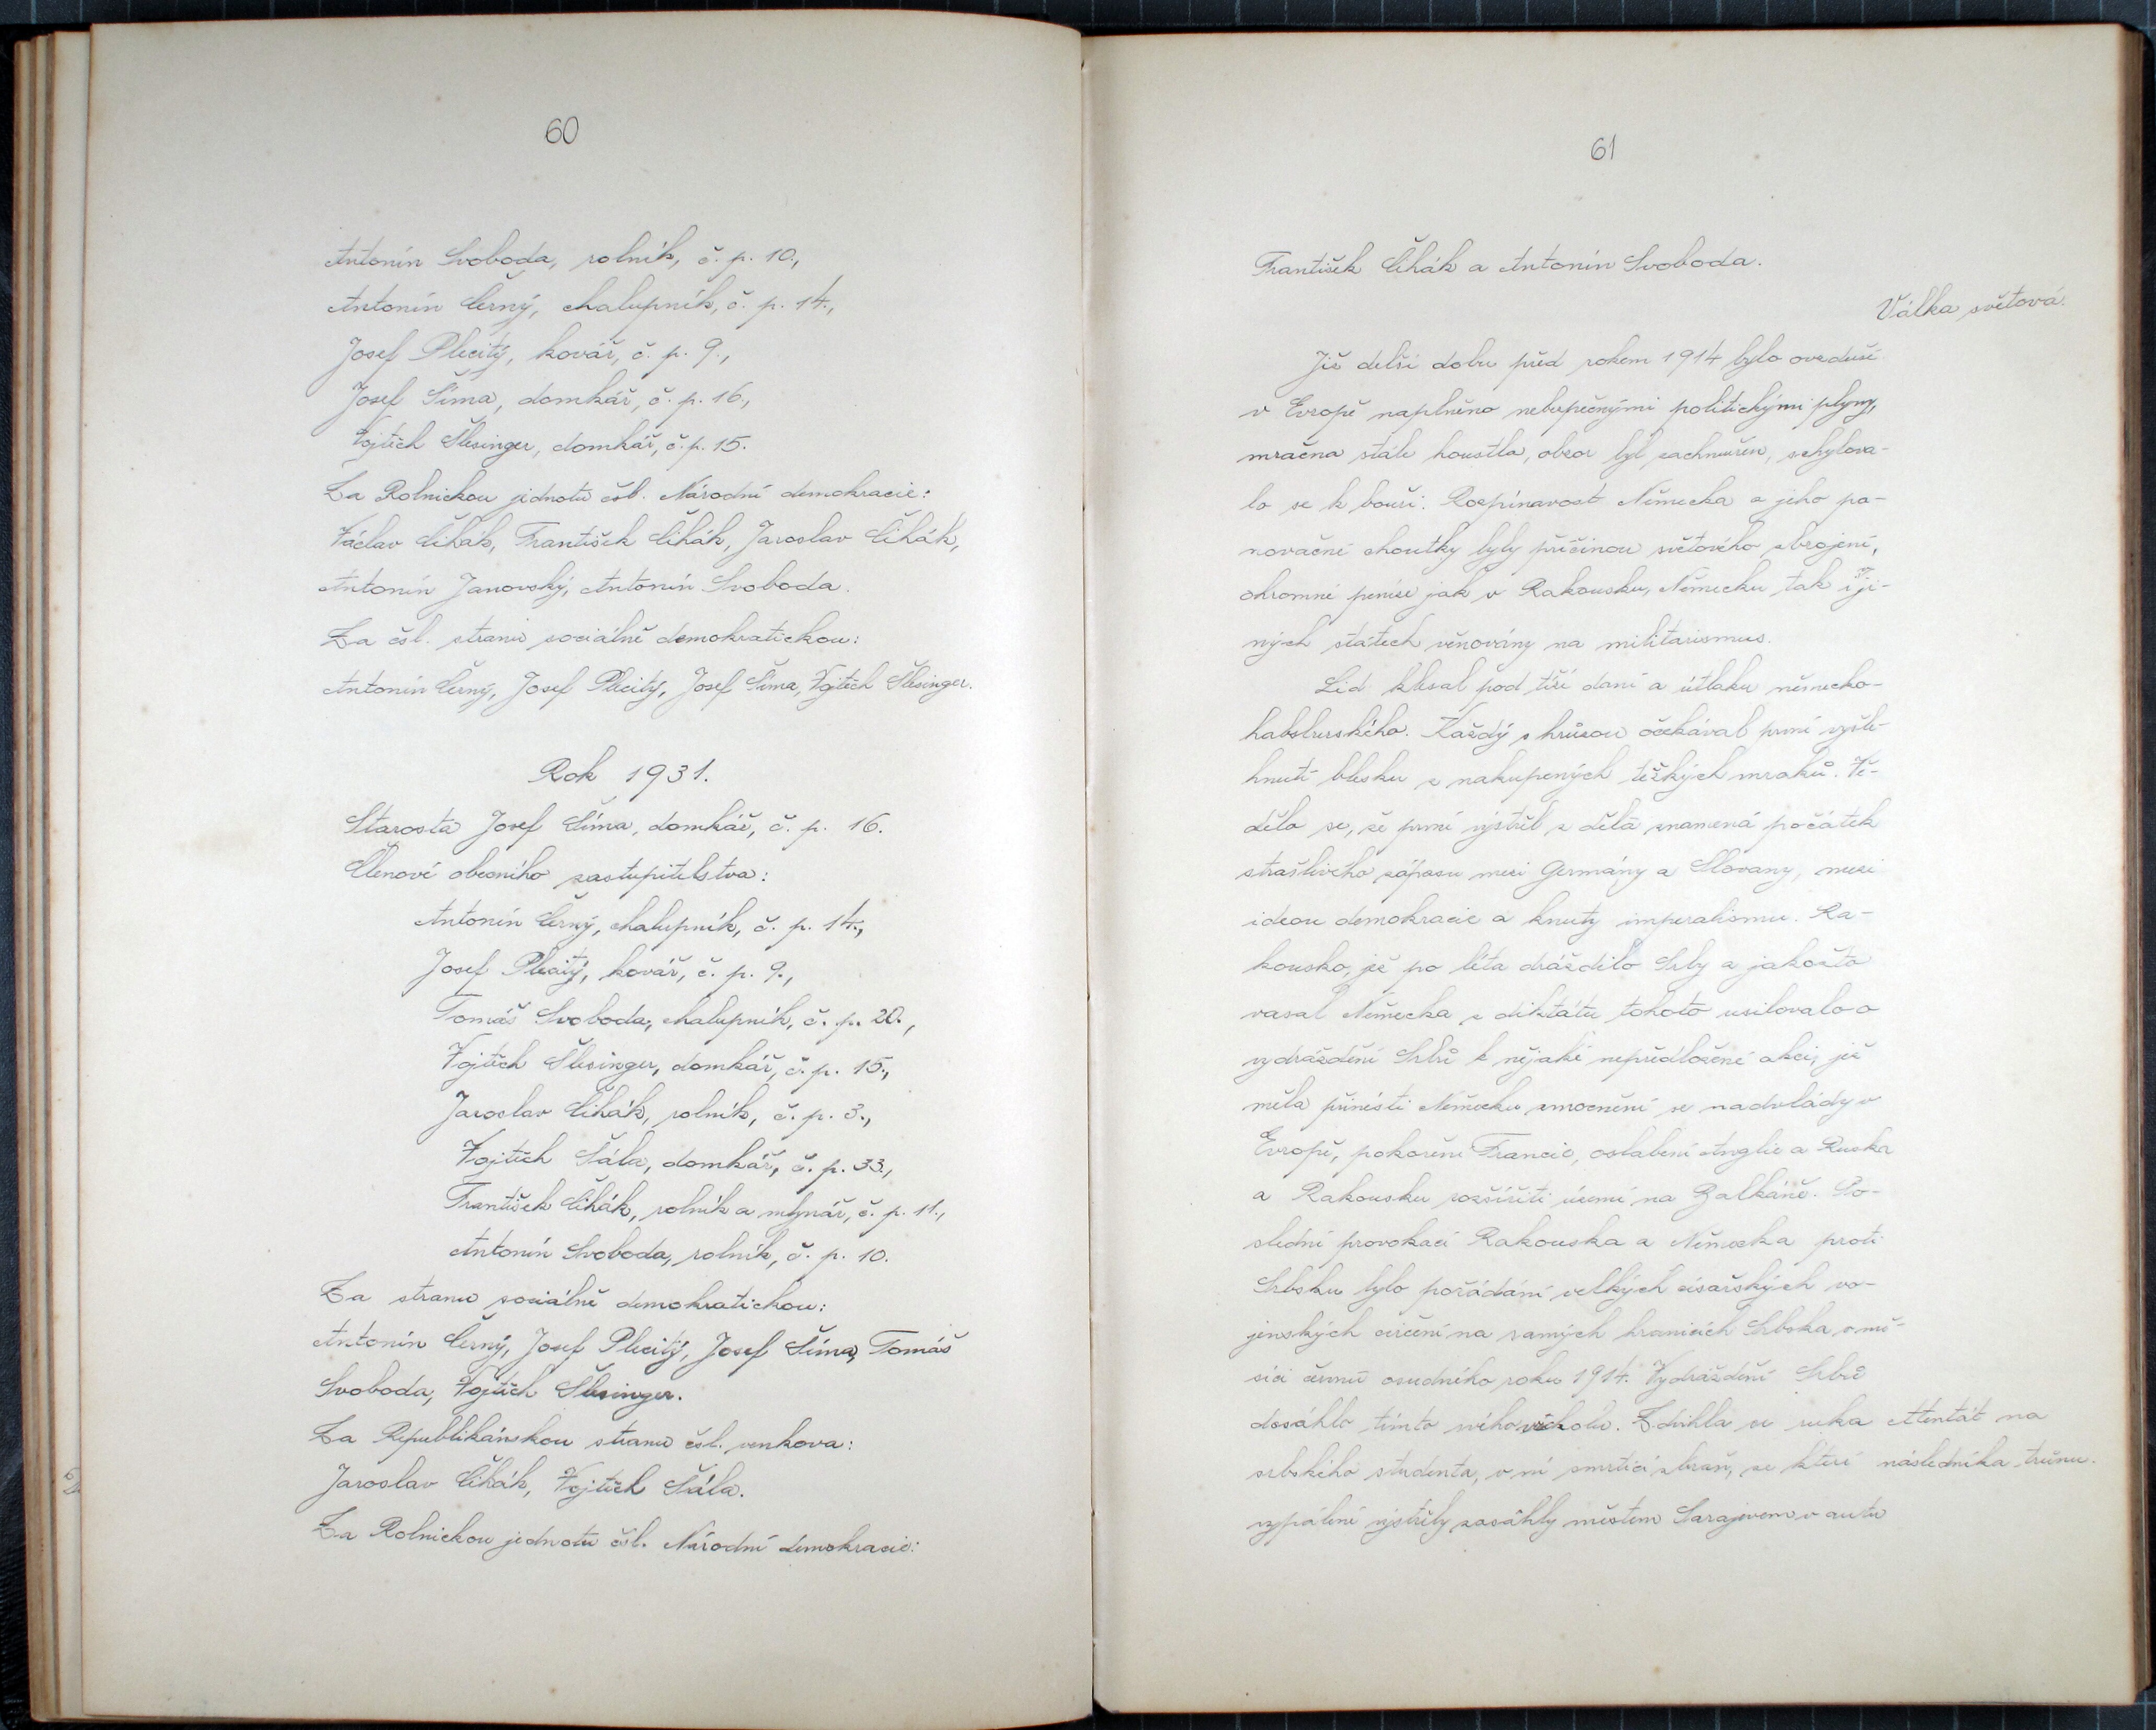 60
Antonín Svoboda, rolník, č. p. 10.,
Antonín Černý, chalupník, č. p. 14.,
Josef Plecitý, kovář, č. p. 9.,
Josef Šíma, domkář, č. p. 16.,
Vojtěch Šlesinger, domkář, č. p. 15.
Za Rolnickou jednotu čsl. Národní demokracie:
Václav Čihák, František Čihák, Jaroslav Čihák,
Antonín Janovský, Antonín Svoboda.
Za čsl. stranu sociálně demokratickou:
Antonín Černý, Josef Plecitý, Josef Šíma, Vojtěch Šlesinger.
Rok 1931.
Starosta Josef Šíma, domkář, č. p. 16.
Členové obecního zastupitelstva:
Antonín Černý, chalupník, č. p. 14.,
Josef Plecitý, kovář, č. p. 9.,
Tomáš Svoboda, chalupník, č. p. 20.,
Vojtěch Šlesinger, domkář, č. p. 15.,
Jaroslav Čihák, rolník, č. p. 3.,
Vojtěch Šála, domkář, č. p. 33.,
František Čihák, rolník a mlynář, č. p. 11.,
Antonín Svoboda, rolník, č. p. 10.
Za stranu sociálně demokratickou:
Antonín Černý, Josef Plecitý, Josef Šíma, Tomáš
Svoboda, Vojtěch Šlesinger.
Za Republikánskou stranu čsl. venkova:
Jaroslav Čihák, Vojtěch Šála.
Za Rolnickou jednotu čsl. Národní demokracie:
61
František Čihák a Antonín Svoboda.
Válka světová.
Již delší dobu před rokem 1914 bylo ovzduší
v Evropě naplněno nebezpečnými politickými plyny,
mračna stále houstla, obzor byl zachmuřen, schylova-
lo se k bouři. Rozpínavost Německa a jeho pa-
novačné choutky byly příčinou světového zbrojení,
ohromné peníze jak v Rakousku, Německu, tak i v ji-
ných státech věnovány na militarismus.
Lid klesal pod tíží daní a útlaku německo-
habsburského. Každý s hrůzou očekával první vyšle-
hnutí blesku z nakupených těžkých mraků. Vě-
dělo se, že první výstřel z děla znamená počátek
strašlivého zápasu mezi Germány a Slovany, mezi
ideou demokracie a knuty imperalismu. Ra-
kousko, jež po léta dráždilo Srby a jakožto
vasal Německa z diktátu tohoto usilovalo o
vydráždění Srbů k nějaké nepředložené akci, jež
měla přinésti Německu zmocnění se nadvlády v
Evropě, pokoření Francie, oslabení Anglie a Ruska
a Rakousku rozšířiti území na Balkáně. Po-
slední provokací Rakouska a Německa proti
Srbsku bylo pořádání velkých císařských vo-
jenských cvičení na samých hranicích Srbska v mě-
síci červnu osudného roku 1914. Vydráždění Srbů
dosáhlo tímto svého vrcholu. Zdvihla se ruka
Atentát na
srbského studenta, v ní smrtící zbraň, ze které
následníka trůnu.
vypálené výstřely zasáhly městem Sarajevem v autu